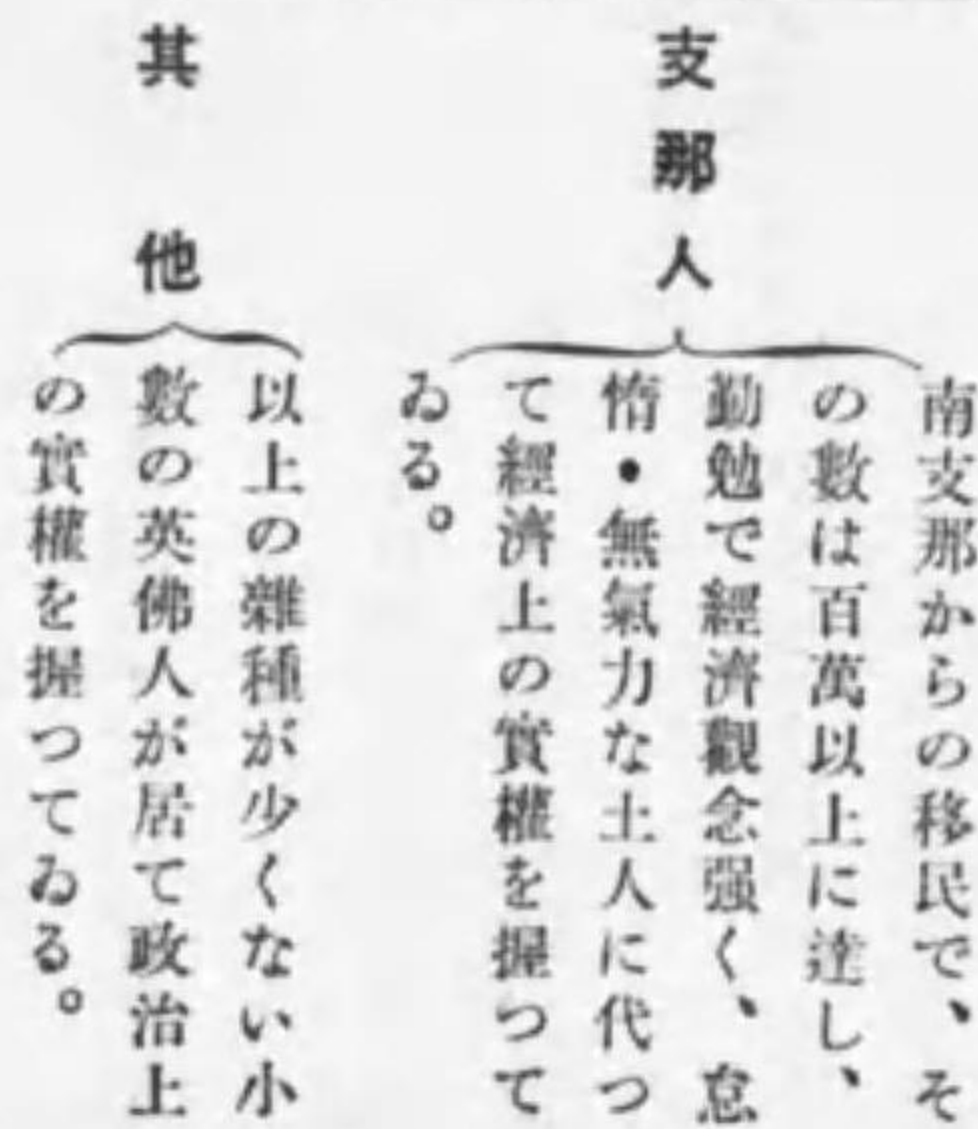 支那人
南支那からの移民で、そ
の數は百萬以上に達し、
勤勉で經濟觀念强く、怠
惰・無氣力な土人に代つ
て經濟上の實權を握つて
ゐる。
其他
以上の雜種が少くない小
數の英佛人が居て政治上
の實權を握つてゐる。